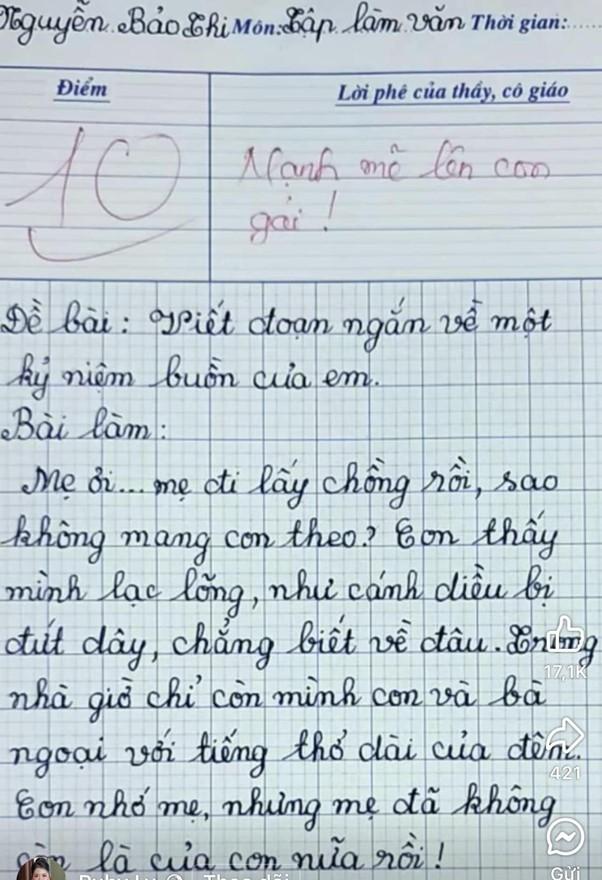 Nguyễn Bảo Thi Môn: Tập làm văn Thời gian:......
Điểm
Lời phê của thầy, cô giáo
10
Mạnh mẽ lên con
gái!
Đề bài: Viết đoạn ngắn về một
kỷ niệm buồn của em.
Bài làm:
Mẹ ơi... mẹ đi lấy chồng rồi, sao
không mang con theo? Con thấy
mình lạc lõng, như cánh diều bị
đứt dây, chẳng biết về đâu. Trong
nhà giờ chỉ còn mình con và bà
ngoại với tiếng thở dài của đêm.
Con nhớ mẹ, nhưng mẹ đã không
còn là của con nữa rồi!
17,1K
421
Gửi
Theo dõi